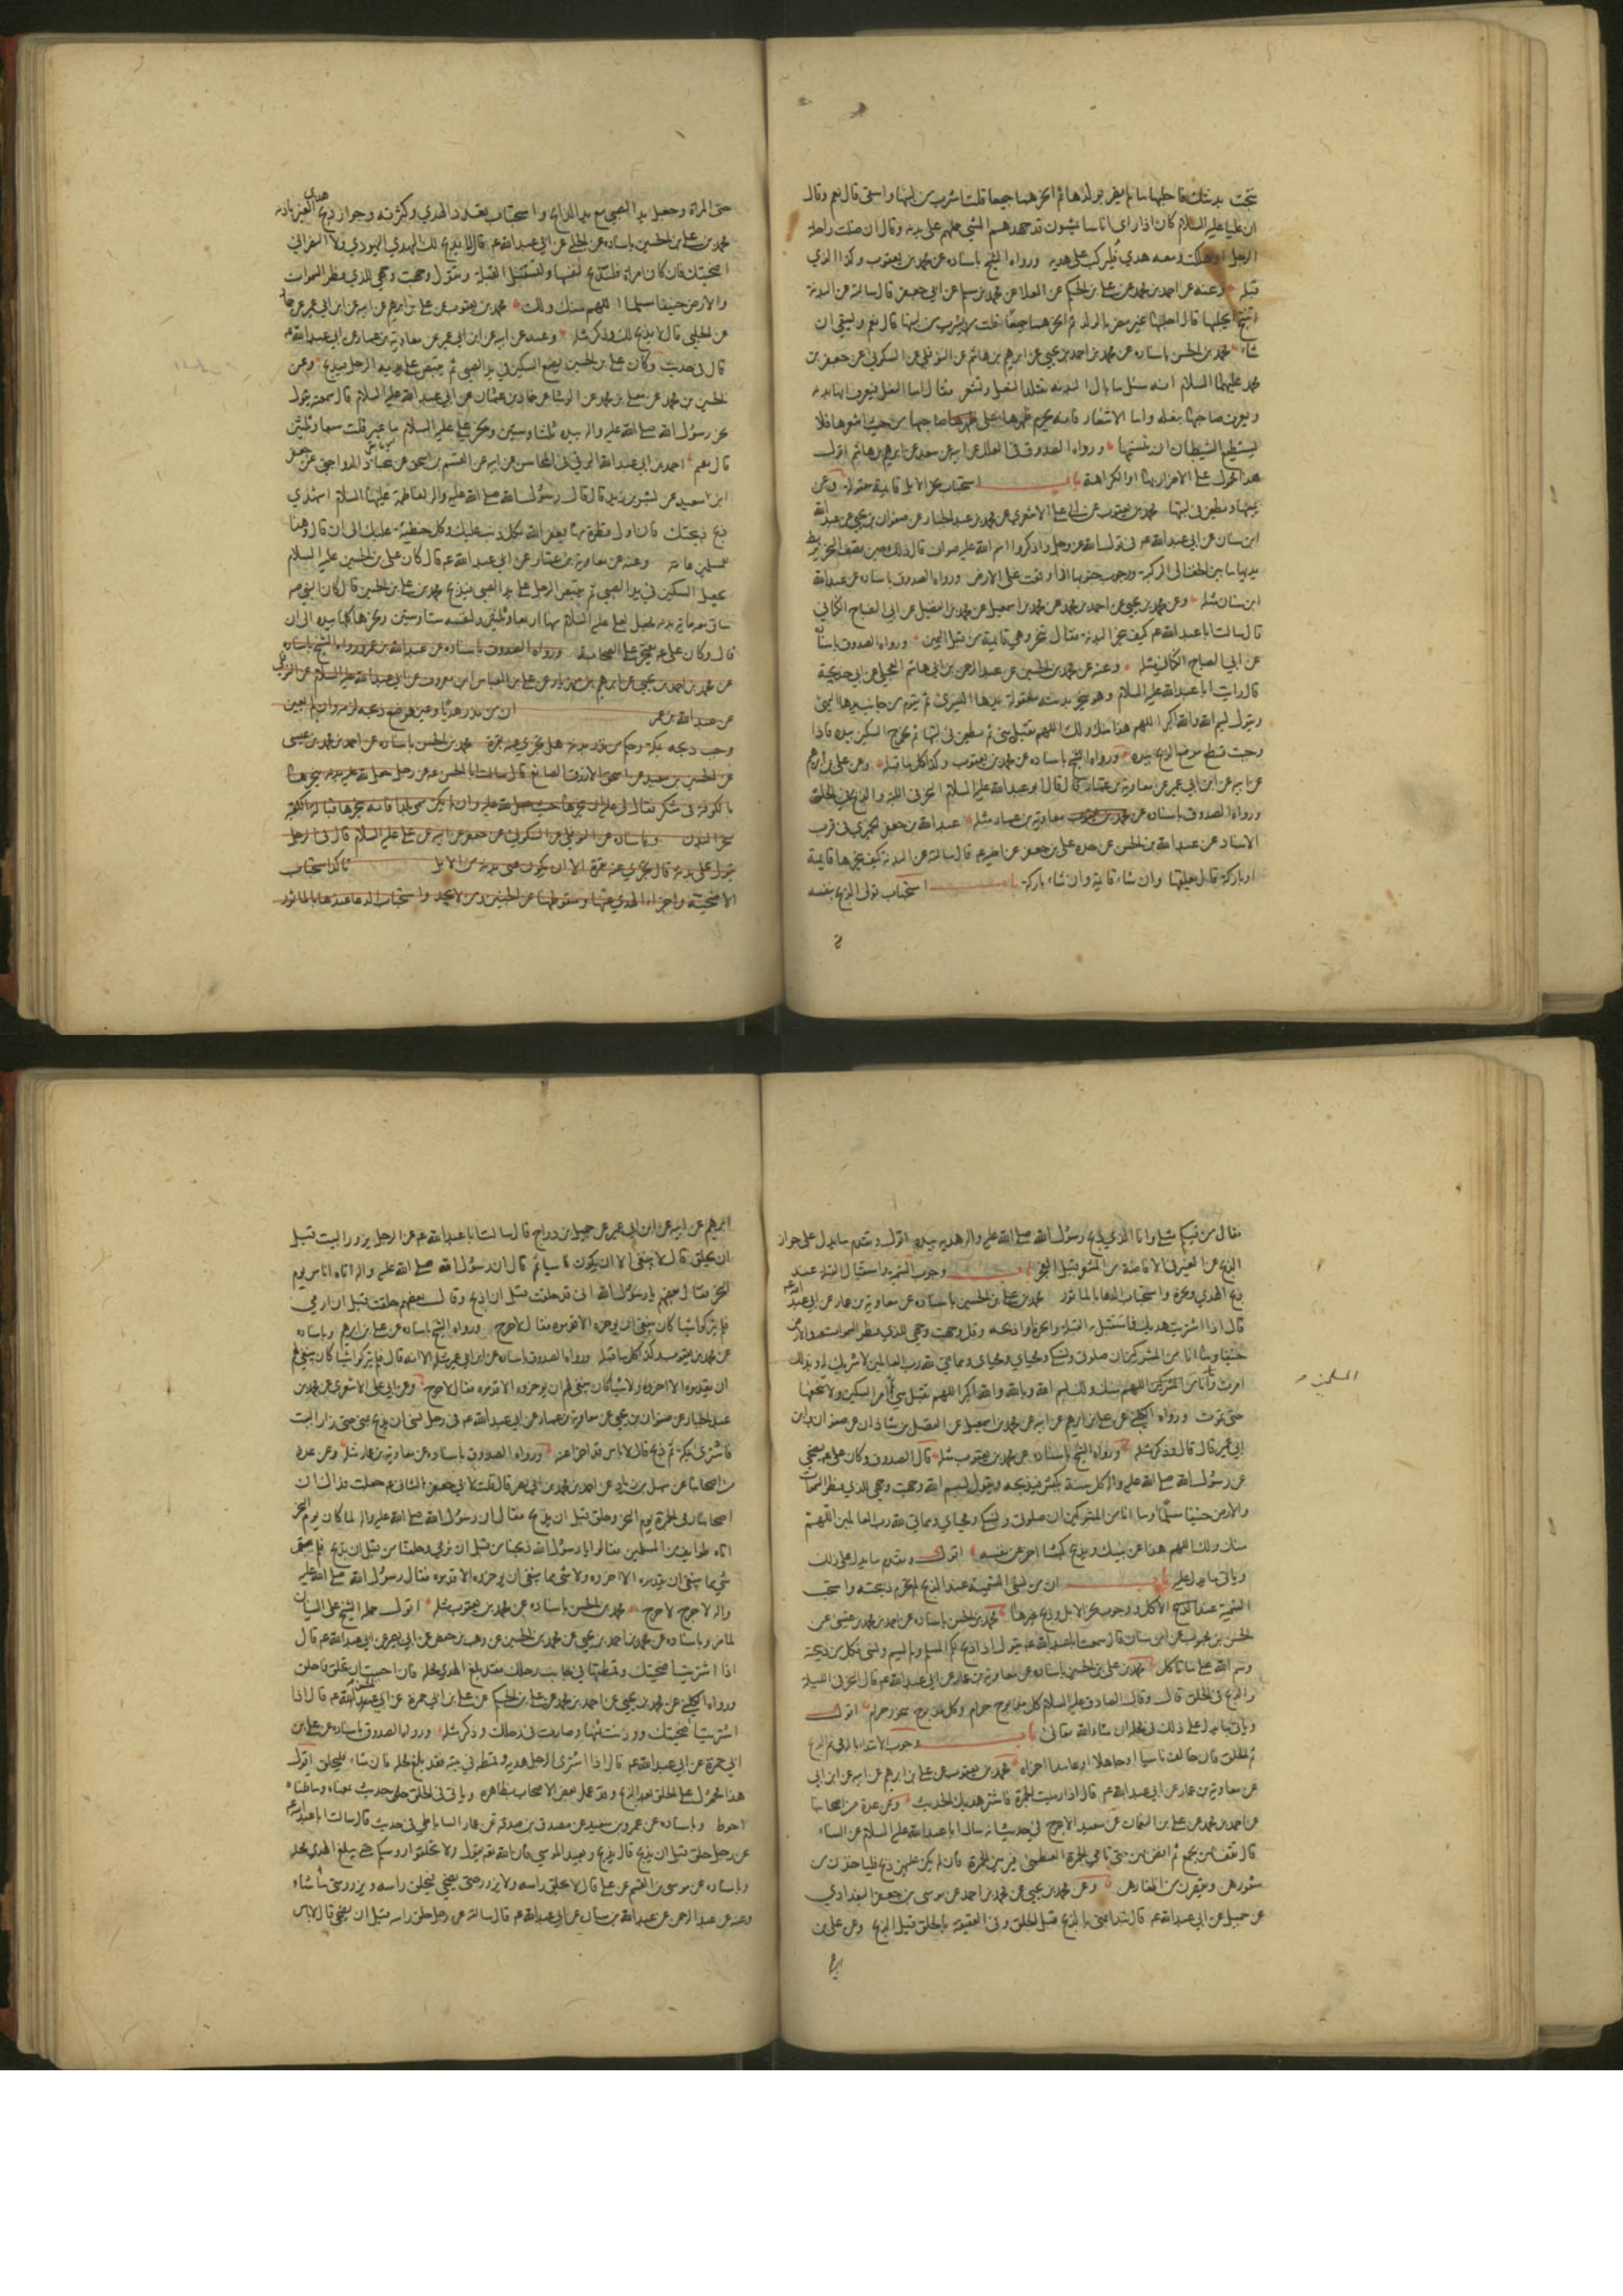 نتجت بدنتك فاحلبها ما لم يضر بولدها ثم انحرهما جميعا قلت اشرب من لبنها واسقى قال نعم وقال
ان عليا عليه السلام كان اذا راى اناسا يمشون قد جهدهم المشي حملهم على بدنه وقال ان ضلت راحلة
الرجل او هلكت ومعه هدي فليركب على هديه ورواه الشيخ باسناده عن محمد بن يعقوب وكذا الذي
قبله وعنه عن احمد بن محمد عن علي بن الحكم عن العلا عن محمد بن مسلم عن ابي جعفر قال سالته عن البدنة
تنتج ايحلبها قال احلبها غير مضر بالولد ثم انحرهما جميعا قلت يشرب من لبنها قال نعم ويسقي ان
شاء محمد بن الحسن باسناده عن محمد بن احمد بن يحيى عن ابرهيم بن هاشم عن النوفلي عن السكوني عن جعفر بن
محمد عليهما السلام انه سئل ما بال البدنة تقلد النعل وتشعر فقال اما النعل فيعرف انها بدنه
ويعرفها صاحبها بنعله واما الاشعار فانه يحرم ظهرها على صاحبها من حيث اشعرها فلا
يستطيع الشيطان ان يتسنمها ورواه الصدوق في العلل عن ابيه عن سعد عن ابرهيم بن هاشم اقول
هذا محمول على الاضرار بها او الكراهة باب استحباب نحر الابل قائمة معقولة وعن
يمينها ويطعن في لبتها محمد بن يعقوب عن ابي علي الاشعري عن محمد بن عبد الجبار عن صفوان بن يحيى عن عبد الله
ابن سنان عن ابي عبد الله ع في قول الله عز وجل واذكروا اسم الله عليها صواف قال ذلك حين تصف للنحر يربط
يديها ما بين الخف الى الركبة ووجوب جنوبها اذا وقعت على الارض ورواه الصدوق باسناده عن عبد الله
ابن سنان مثله وعن محمد بن يحيى عن احمد بن محمد عن محمد بن اسمعيل عن محمد بن الفضيل عن ابي الصباح الكناني
قال سالت ابا عبد الله ع كيف تنحر البدنة فقال تنحر وهي قائمة من قبل اليمين ورواه الصدوق باسناده
عن ابي الصباح الكناني مثله وعنه عن محمد بن الحسين عن عبد الرحمن بن ابي هاشم البجلي عن ابي خديجة
قال رايت ابا عبد الله عليه السلام وهو ينحر بدنته معقولة يدها اليسرى ثم يقوم من جانب يدها اليمنى
ويقول بسم الله والله اكبر اللهم هذا منك ولك اللهم تقبله مني ثم يطعن في لبتها ثم يخرج السكين بيده فاذا
وجبت قطع موضع الذبح بيده ورواه الشيخ باسناده عن محمد بن يعقوب وكذا كل ما قبله وعن علي بن ابرهيم
عن ابيه عن ابن ابي عمير عن معاوية بن عمار قال قال ابو عبد الله عليه السلام النحر في اللبة والذبح في الحلق
ورواه الصدوق باسناده عن معاوية بن عمار مثله عبد الله بن جعفر الحميري في قرب
الاسناد عن عبد الله بن الحسن عن جده علي بن جعفر عن اخيه ع قال سالته عن البدنة كيف ينحرها قائمة
او باركة قال يعقلها وان شاء قائمة وان شاء باركة باب استحباب تولى الذبح بنفسه
حتى المراة وجعل يد الصبي مع يد الذابح واستحباب تعدد الهدي وكثرته وجواز ذبح هدي الغير باذنه
محمد بن علي بن الحسين باسناده عن الحلبي عن ابي عبد الله ع قال لا يذبح لك اليهودي ولا النصراني
اضحيتك فان كان امراة فلتذبح لنفسها ولتستقبل القبلة وتقول وجهت وجهي للذي فطر السموات
والارض حنيفا مسلما اللهم منك ولك محمد بن يعقوب عن علي بن ابرهيم عن ابيه عن ابن ابي عمير عن حماد
عن الحلبي قال لا يذبح لك وذكر مثله وعنه عن ابيه عن ابن ابي عمير عن معاوية بن عمار عن ابي عبد الله ع
قال في حديث وكان علي بن الحسين يضع السكين في يد الصبي ثم يقبض على يديه الرجل فيذبح وعن
الحسين بن محمد عن معلى بن محمد عن الوشا عن حماد بن عثمان عن ابي عبد الله عليه السلام قال سمعته يقول
نحر رسول الله صلى الله عليه واله بيده ثلثا وستين ونحر علي عليه السلام ما غبر قلت سبعا وثلثين
قال نعم احمد بن ابي عبد الله البرقي في المحاسن عن ابيه عن القسم بن اسحق عن عباد الدواجني عن جعفر
ابن سعيد عن بشير بن زيد قال قال رسول الله صلى الله عليه واله لفاطمة عليها السلام اشهدي
ذبح ذبيحتك فان اول قطرة منها يغفر الله بكل ذنب عليك وكل خطيئة عليك الى ان قال وهذا
للمسلمين عامة وعنه عن معاوية بن عمار عن ابي عبد الله ع قال كان علي بن الحسين عليه السلام
يجعل السكين في يد الصبي ثم يقبض الرجل على يد الصبي فيذبح محمد بن علي بن الحسين قال كان النبي ص
ساق معه مائة بدنة فجعل لعلي عليه السلام منها اربعا وثلثين ولنفسه ستا وستين ونحرها كلها بيده الى ان
قال وكان علي ع يفتخر على الصحابة ورواه الصدوق باسناده عن عبد الله بن عمر ورواه الشيخ باسناده
عن محمد بن احمد بن يحيى عن ابرهيم بن مهزيار عن علي بن العباس ابن معروف عن ابي عبد الله عليه السلام
عن عبد الله بن عمر ان من نذر هديا وعين موضع ذبحه لزم وان لم يعين
وجب ذبحه بمكة وحكم من نذر بدنة هل تجزي عنه بقرة محمد بن الحسن باسناده عن احمد بن محمد بن عيسى
عن الحسين بن سعيد عن اسحق الازرق الصائغ قال سالت ابا الحسن ع عن رجل جعل لله عليه بدنة ينحرها
بالكوفة في شكر فقال لي عليه ان ينحرها حيث جعل لله عليه وان لم يكن سمى بلدا فانه ينحرها قبالة الكعبة
نحر البدن وباسناده عن النوفلي عن السكوني عن جعفر عن ابيه عن علي عليه السلام قال في الرجل
يقول علي بدنة قال تجزي عنه بقرة الا ان يكون عنى بدنة من الابل تاكد استحباب
الاضحية واجزاء الهدي عنها وسقوطها عن الجنين ومن لا يجد واستحباب الدعا عندها بالماثور
فقال من فيكم مثلي وانا الذي ذبح رسول الله صلى الله عليه واله هديه بيده اقول وتقدم ما يدل على جواز
الذبح عن الغير في الافاضة من المشعر قبل الفجر باب وجوب التسمية واستقبال القبلة عند
ذبح الهدي ونحره واستحباب الدعا بالماثور محمد بن علي بن الحسين باسناده عن معاوية بن عمار عن ابي عبد الله ع
قال اذا اشتريت هديك فاستقبل به القبلة وانحره او اذبحه وقل وجهت وجهي للذي فطر السموات والارض
حنيفا وما انا من المشركين ان صلوتي ونسكي ومحياي ومماتي لله رب العالمين لا شريك له وبذلك
امرت وانا من المسلمين اللهم منك ولك بسم الله وبالله والله اكبر اللهم تقبل مني ثم امر السكين ولا تنخعها
حتى تموت ورواه الكليني عن علي بن ابرهيم عن ابيه عن محمد بن اسمعيل عن الفضل بن شاذان عن صفوان وابن
ابي عمير قال قال وذكر مثله ورواه الشيخ باسناده عن محمد بن يعقوب مثله قال الصدوق وكان علي ع يضحي
عن رسول الله صلى الله عليه واله كل سنة بكبش فيذبحه ويقول بسم الله وجهت وجهي للذي فطر السموات
والارض حنيفا مسلما وما انا من المشركين ان صلوتي ونسكي ومحياي ومماتي لله رب العالمين اللهم
منك ولك اللهم هذا عن نبيك ويذبح كبشا اخر عن نفسه اقول وتقدم ما يدل على ذلك
وياتي ما يدل عليه باب ان من نسى التسمية عند الذبح لم تحرم ذبيحته واستحب
التسمية عند الاكل ووجوب نحر الابل وذبح غيرها محمد بن الحسن باسناده عن احمد بن محمد بن عيسى عن
الحسن بن محبوب عن ابن سنان قال سمعت ابا عبد الله ع يقول اذا ذبح المسلم ولم يسم ونسى فكل من ذبيحته
وسم الله على ما تاكل محمد بن علي بن الحسين باسناده عن معاوية بن عمار عن ابي عبد الله ع قال النحر في اللبة
والذبح في الحلق قال وقال الصادق عليه السلام كل منحور مذبوح حرام وكل مذبوح منحور حرام اقول
وياتي ما يدل على ذلك في محله ان شاء الله تعالى باب وجوب الابتداء بالرمي ثم الذبح
ثم الحلق فان خالف ناسيا او جاهلا او عامدا اجزاه محمد بن يعقوب عن علي بن ابرهيم عن ابيه عن ابن ابي
عن معاوية بن عمار عن ابي عبد الله ع قال اذا رميت الجمرة فاشتر هديك الحديث وعن عدة من اصحابنا
عن احمد بن محمد عن علي بن النعمان عن سعيد الاعرج في حديث انه سال ابا عبد الله عليه السلام عن النساء
قال تقف بهن بجمع ثم افض بهن حتى تاتي الجمرة العظمى فيرمين الجمرة فان لم يكن عليهن ذبح فلياخذن من
شعورهن ويقصرن من اظفارهن وعن محمد بن يحيى عن محمد بن احمد عن موسى بن جعفر البغدادي
عن جميل عن ابي عبد الله ع قال تبدا بمنى بالذبح قبل الحلق وفي العقيقة بالحلق قبل الذبح وعن علي بن
المسلمين
ابرهيم عن ابيه عن ابن ابي عمير عن جميل بن دراج قال سالت ابا عبد الله ع عن الرجل يزور البيت قبل
ان يحلق قال لا ينبغي الا ان يكون ناسيا ثم قال ان رسول الله صلى الله عليه واله اتاه اناس يوم
النحر فقال بعضهم يا رسول الله اني قد حلقت قبل ان اذبح وقال بعضهم حلقت قبل ان ارمي
فلم يتركوا شيئا كان ينبغي ان يؤخروه الا قدموه فقال لا حرج ورواه الشيخ باسناده عن علي بن ابرهيم وباسناده
عن محمد بن يعقوب وكذا كل ما قبله ورواه الصدوق باسناده عن ابن ابي عمير مثله الا انه قال فلم يتركوا شيئا كان ينبغي لهم
ان يقدموه الا اخروه ولا شيئا كان ينبغي لهم ان يؤخروه الا قدموه فقال لا حرج وعن ابي علي الاشعري عن محمد بن
عبد الجبار عن صفوان بن يحيى عن معاوية بن عمار عن ابي عبد الله ع في رجل نسى ان يذبح بمنى حتى زار البيت
فاشترى بمكة ثم ذبح قال لا باس قد اجزا عنه ورواه الصدوق باسناده عن معاوية بن عمار مثله وعن عدة
من اصحابنا عن سهل بن زياد عن احمد بن محمد بن ابي نصر قال قلت لابي جعفر الثاني ع جعلت فداك ان
اصحابنا رمى الجمرة يوم النحر وحلق قبل ان يذبح فقال ان رسول الله صلى الله عليه واله لما كان يوم النحر
اتاه طوائف من المسلمين فقالوا يا رسول الله ذبحنا من قبل ان نرمي وحلقنا من قبل ان نذبح فلم يبق
شي مما ينبغي ان يقدموه الا اخروه ولا شي مما ينبغي ان يؤخروه الا قدموه فقال رسول الله صلى الله عليه
واله لا حرج لا حرج محمد بن الحسن باسناده عن محمد بن يعقوب مثله اقول حمله الشيخ على النسيان
لما مر وباسناده عن محمد بن احمد بن يحيى عن محمد بن الحسين عن وهيب بن حفص عن ابي بصير عن ابي عبد الله ع قال
اذا اشتريت اضحيتك وقمطتها في جانب رحلك فقد بلغ الهدي محله فان احببت ان تحلق فاحلق
ورواه الكليني عن محمد بن يحيى عن احمد بن محمد عن علي بن الحكم عن علي بن ابي حمزة عن ابي الحسن ع قال اذا
اشتريت اضحيتك ووزنت ثمنها وصارت في رحلك وذكر مثله ورواه الصدوق باسناده عن علي بن
ابي حمزة عن ابي عبد الله ع قال اذا اشترى الرجل هديه وقمطه في بيته فقد بلغ محله فان شاء فليحلق اقول
هذا محمول على الحلق بعد الذبح وقد عمل بعض الاصحاب بظاهره وياتي في الحلق حديث بمعناه وما قلناه
احوط وباسناده عن عمرو بن سعيد عن مصدق بن صدقة عن عمار الساباطي في حديث قال سالت ابا عبد الله ع
عن رجل حلق قبل ان يذبح قال يذبح ويعيد الموسى لان الله تعالى يقول ولا تحلقوا رؤسكم حتى يبلغ الهدي محله
وباسناده عن موسى بن القسم عن علي قال لا يحلق راسه ولا يزور حتى يضحي فيحلق راسه ويزور متى ما شاء
وعنه عن عبد الرحمن عن عبد الله بن سنان عن ابي عبد الله ع قال سالته عن رجل حلق راسه قبل ان يضحي قال لا باس